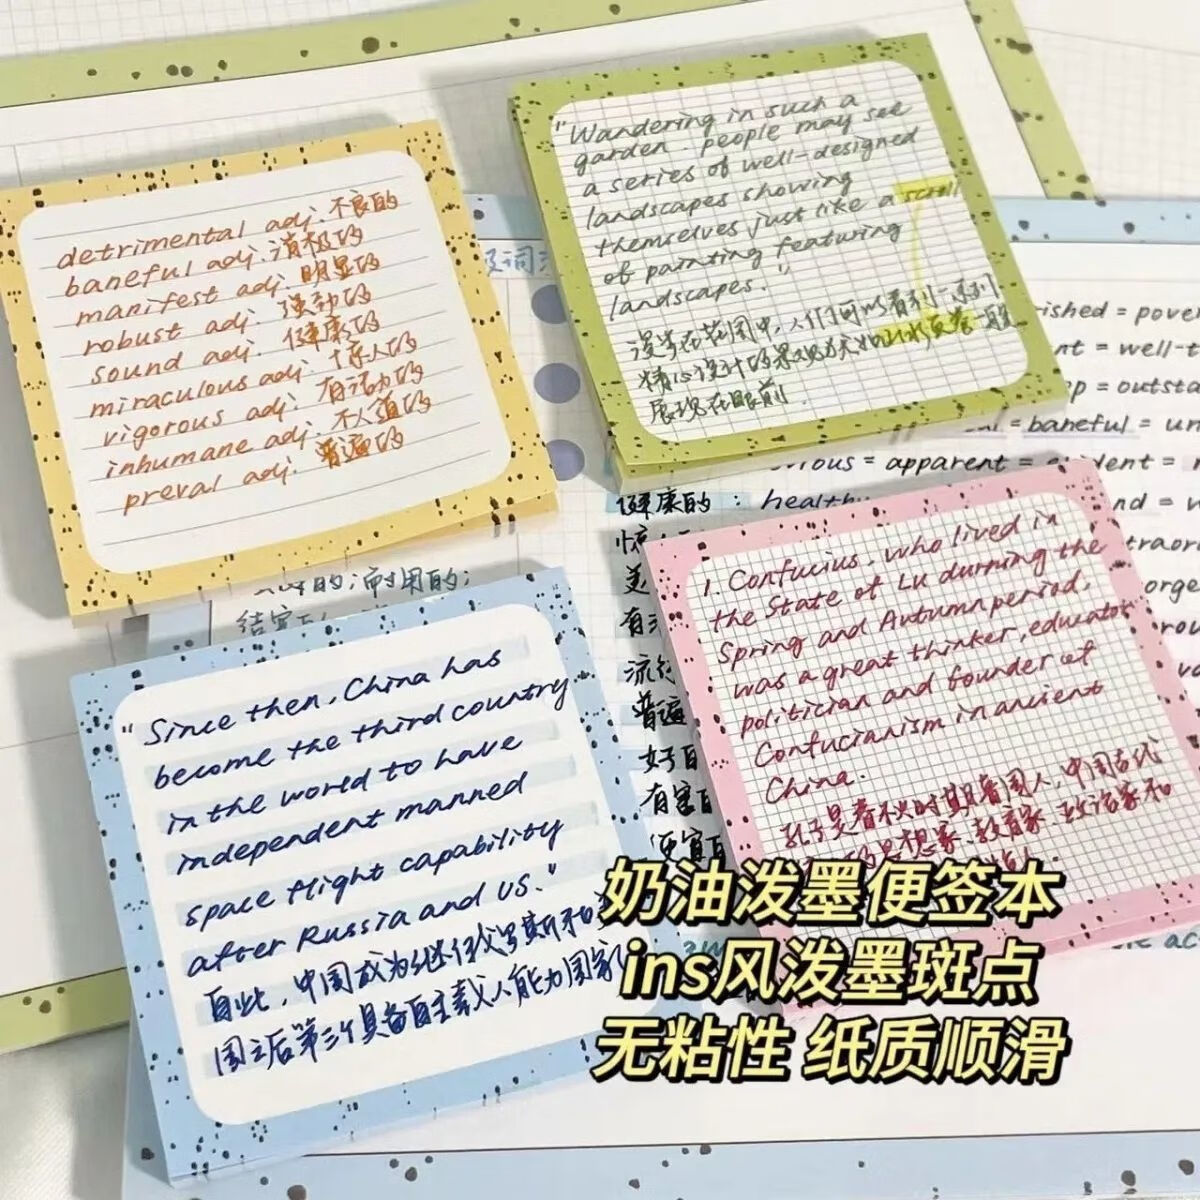 detrimental adj. 不良的
baneful adj. 消极的
manifest adj. 明显的
robust adj. 强劲的
sound adj. 健康的
miraculous adj. 惊人的
vigorous adj. 有活力的
inhumane adj. 不人道的
preval adj. 普遍的
"Wandering in such a
garden. people may see
a series of well-designed
landscapes showing
themselves just like a scroll
of painting featuring
landscapes."
漫步在花园中,人们可以看到一系列
精心设计的景观犹如山水画卷一般
展现在眼前.
ished = pover
nt = well-t
p = outsta
= baneful = un
ious = apparent = evident =
健康的 : healthy
nd =
traor
的;耐用的;
"Since then, China has
become the third country
in the world to have
independent manned
space flight capability
after Russia and US."
自此,中国成为继俄罗斯和
国之后第三个具备自主载人能力国家
1. Confucius, who lived in
the State of Lu durning the
Spring and Autumn period,
was a great thinker, educator
politician and founder of
Confucianism in ancient
China.
孔子是春秋时期鲁国人,中国古代
思想家、教育家、政治家和
有
流行
普遍
好
有害
便宜
奶油泼墨便签本
ins风泼墨斑点
无粘性 纸质顺滑